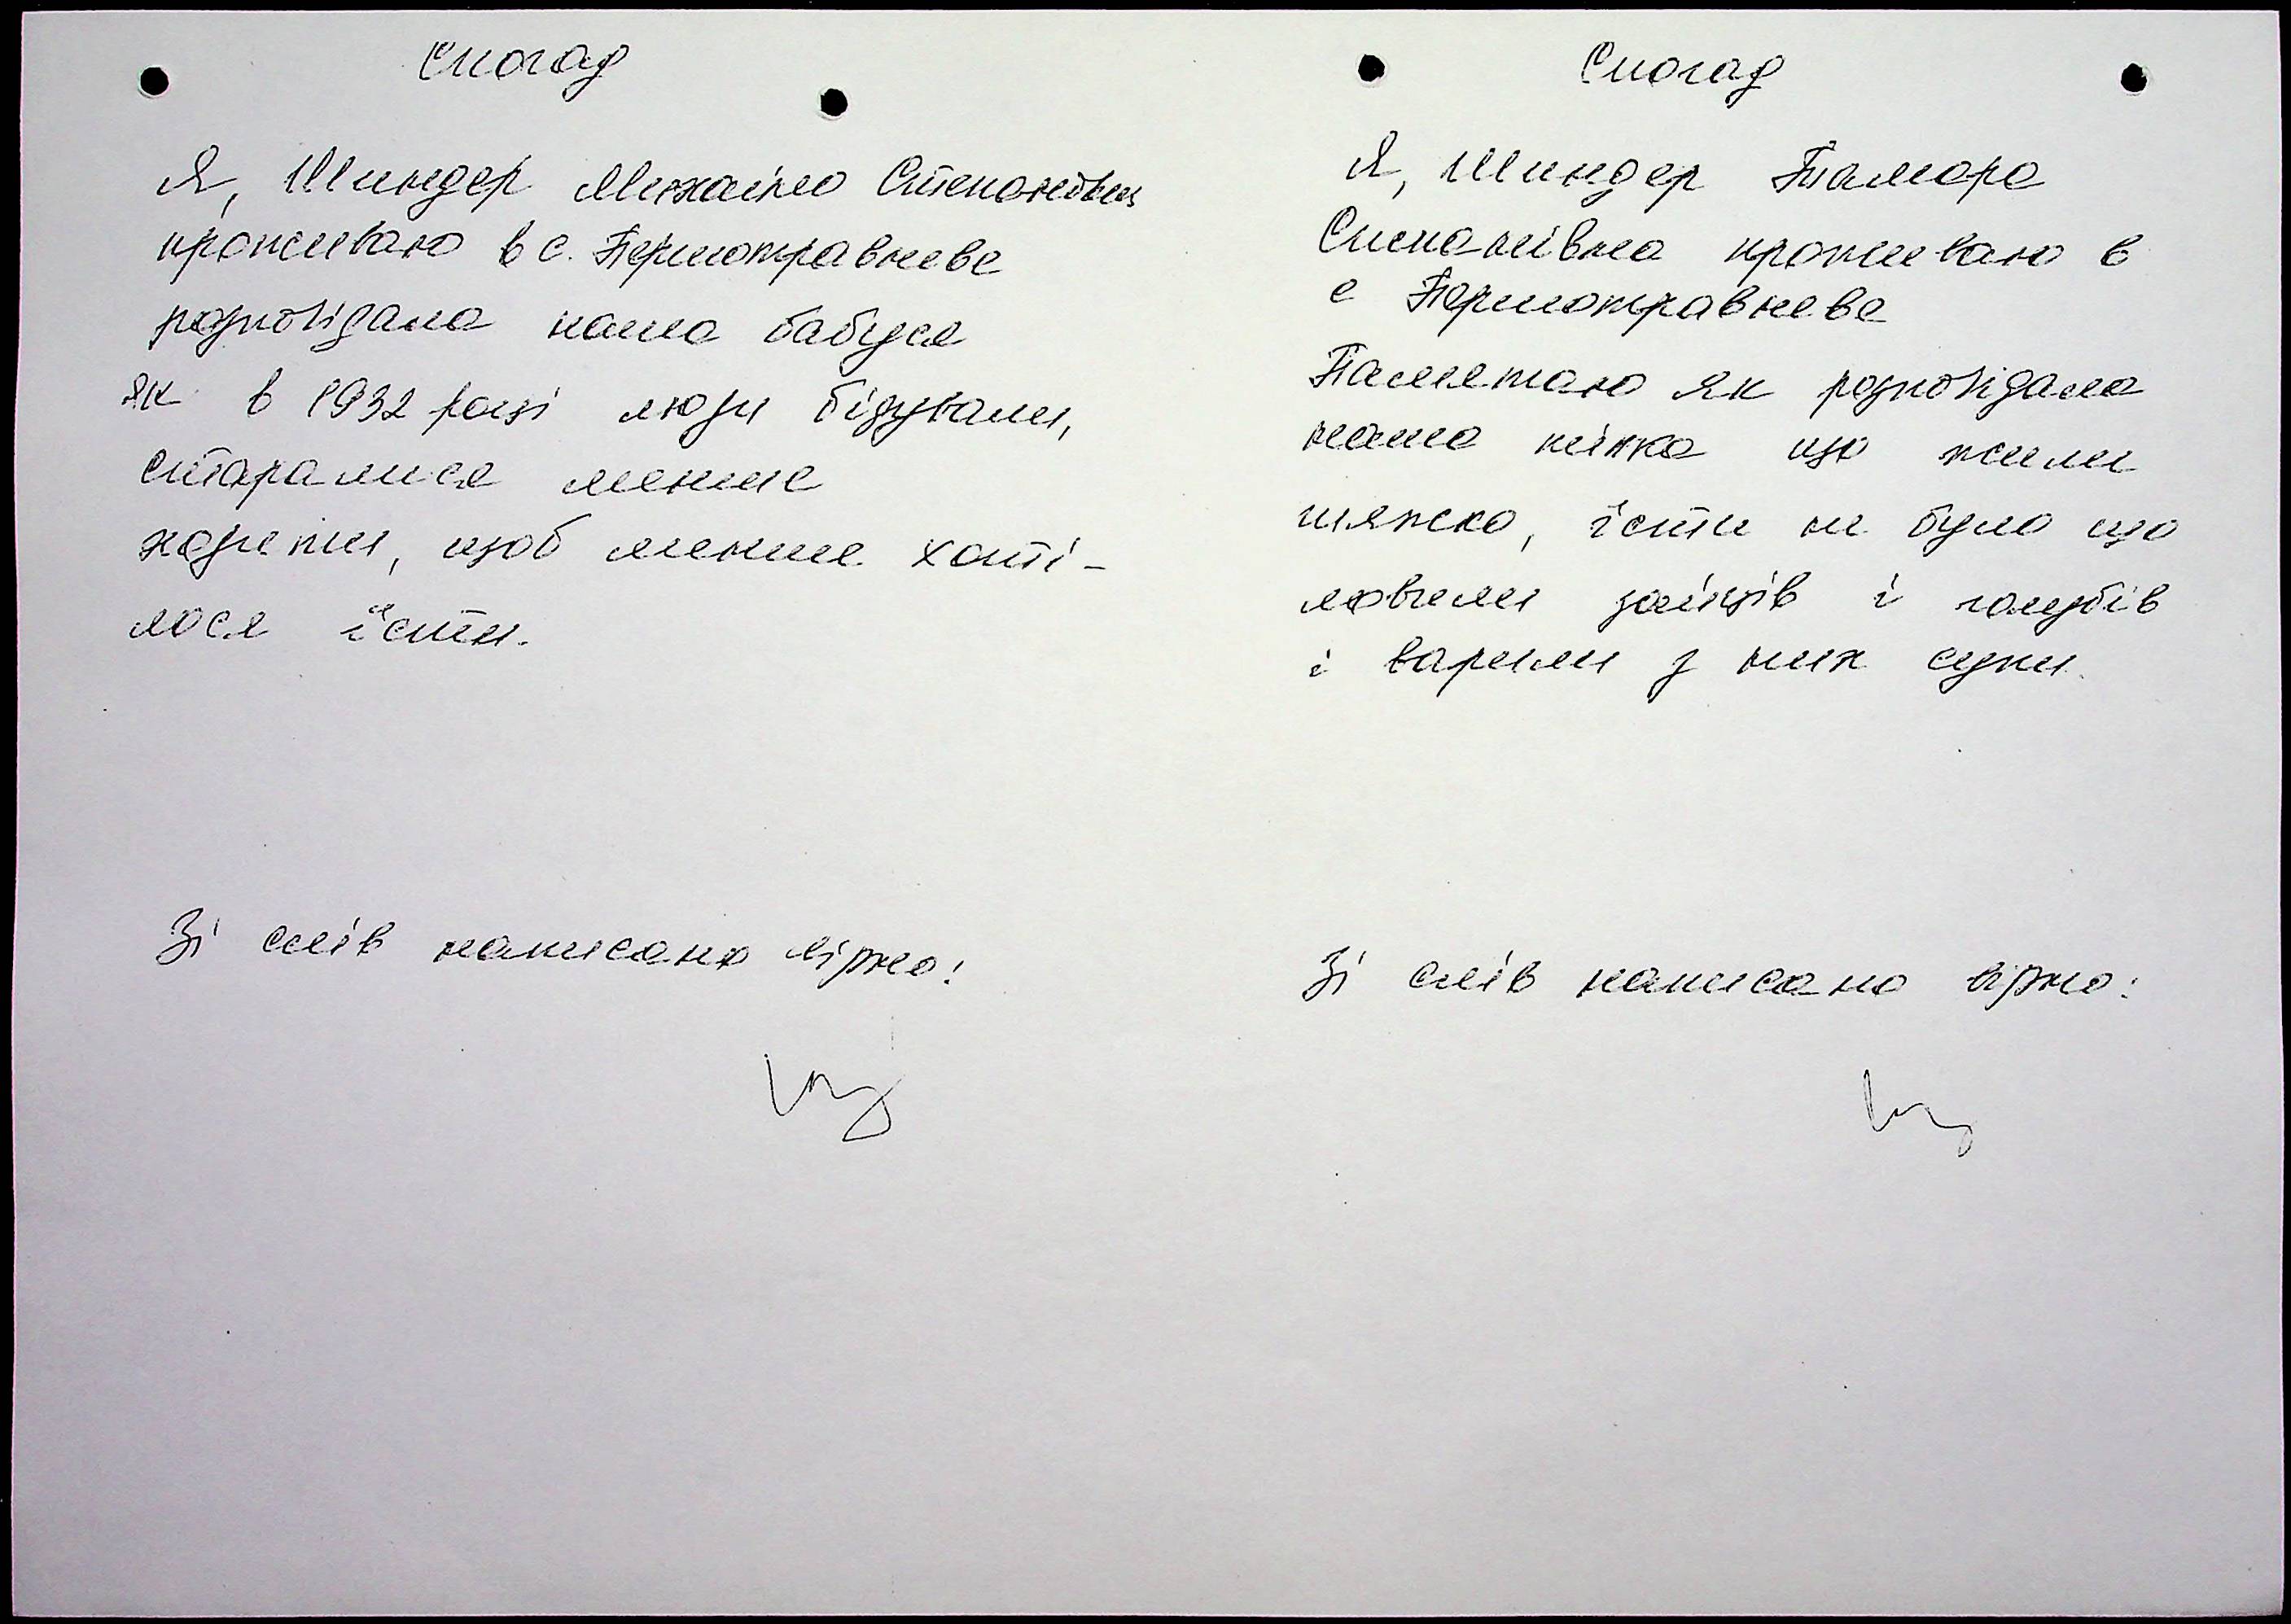 Спогад
Я, Шиндер Михайло Степанович
проживаю в с. Першотравневе
розповідала наша бабуся
як в 1932 році люди бідували,
старалися менше
ходити, щоб менше хоті-
лося їсти.
Зі слів написано вірно:
Спогад
Я, Шиндер Тамара
Степанівна проживаю в
с Першотравневе
Памятаю як розповідала
наша тітка що жили
тяжко, їсти не було що
ловили зайців і голубів
і варили з них супи.
Зі слів написано вірно: